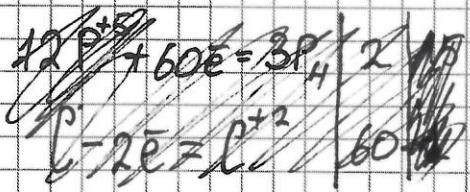 12P⁺⁵ + 60ē = 3P₄ | 2 |
C - 2ē = C⁺² | 60